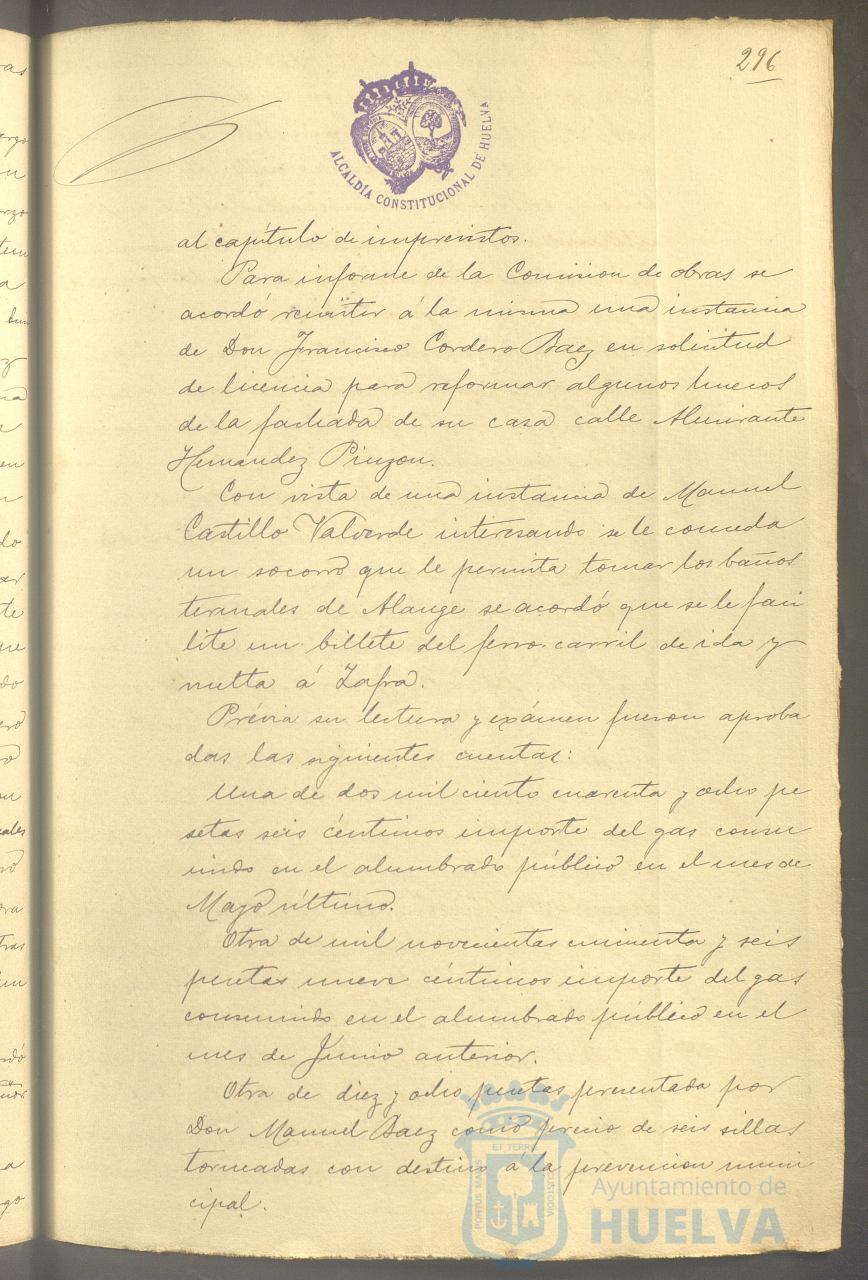 296
ALCALDÍA CONSTITUCIONAL DE HUELVA
al capítulo de imprevistos.
Para informe de la Comision de obras se
acordó remitir á la misma una instancia
de Don Francisco Cordero Baez en solicitud
de licencia para reformar algunos huecos
de la fachada de su casa calle Almirante
Hernandez Pinzon.
Con vista de una instancia de Manuel
Castillo Valverde interesando se le conceda
un socorro que le permita tomar los baños
termales de Alange se acordó que se le faci
lite un billete del ferro-carril de ida y
vuelta á Zafra.
Prévia su lectura y exámen fueron aproba
das las siguientes cuentas:
Una de dos mil ciento cuarenta y ocho pe
setas seis céntimos importe del gas consu
mido en el alumbrado público en el mes de
Mayo último.
Otra de mil novecientas cincuenta y seis
pesetas nueve céntimos importe del gas
consumido en el alumbrado público en el
mes de Junio anterior.
Otra de diez y ocho pesetas presentada por
Don Manuel Baez como precio de seis sillas
torneadas con destino á la prevencion muni
cipal.
PORTUS MARIS ET TERRAE CUSTODIA
Ayuntamiento de
HUELVA